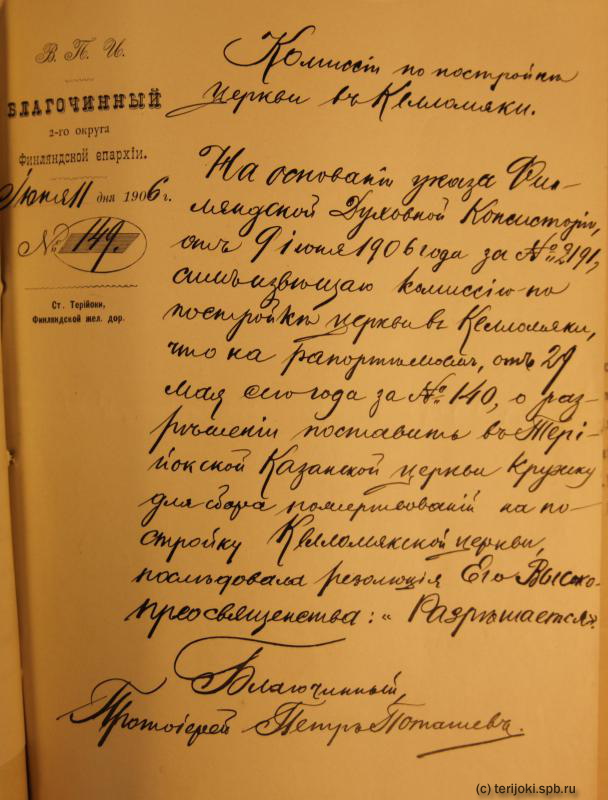 В. П. И.
БЛАГОЧИННЫЙ
2-го округа
Финляндской епархіи.
Іюня 11 дня 1906 г.
№ 149.
Ст. Терійоки,
Финляндской жел. дор.
Комиссіи по постройкѣ
церкви въ Келломяки.
На основаніи указа Фин-
ляндской Духовной Консисторіи,
отъ 9 іюня 1906 года за № 2191,
симъ извѣщаю комиссію по
постройкѣ церкви въ Келломяки,
что на рапортѣ моемъ, отъ 29
мая сего года за № 140, о раз-
рѣшеніи поставить въ Тері-
йокской Казанской церкви кружку
для сбора пожертвованій на по-
стройку Келломякской церкви,
послѣдовала резолюція Его Высоко-
преосвященства: „Разрѣшается".
Благочинный,
Протоіерей Петръ Поташевъ.
(c) terijoki.spb.ru